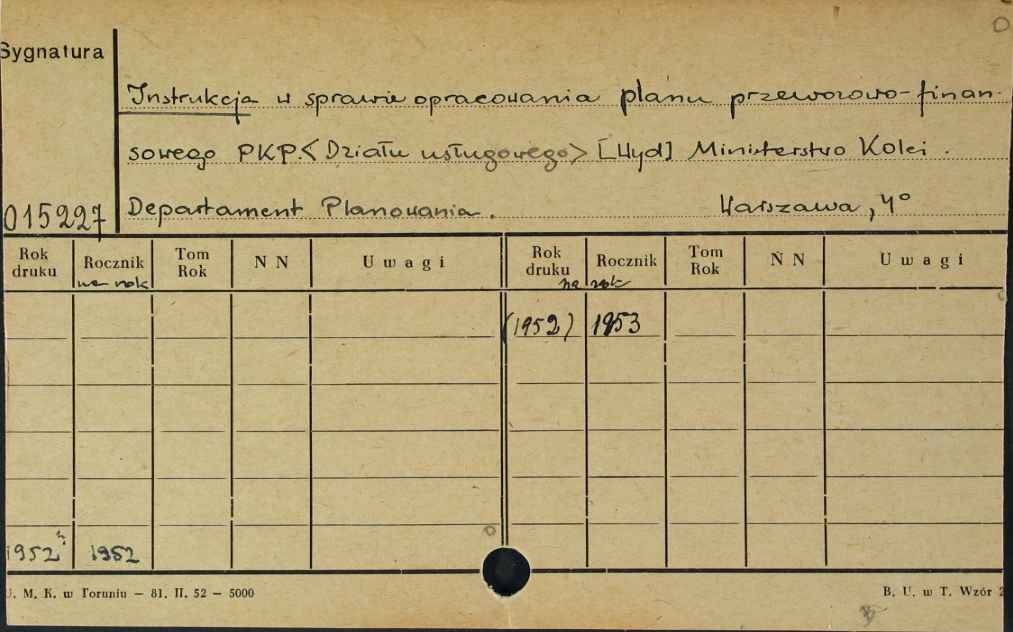 Sygnatura
Instrukcja w sprawie opracowania planu przewozowo-finan-
sowego PKP.<Działu usługowego> [Wyd] Ministerstwo Kolei.
015227 Departament Planowania. Warszawa, 4°
Rok druku Rocznik na rok Tom Rok N N Uwagi Rok druku Rocznik na rok Tom Rok N N Uwagi
(1952) 1953
1952? 1952
U. M. K. w Toruniu — 81. II. 52 — 5000 B. U. w T. Wzór 2